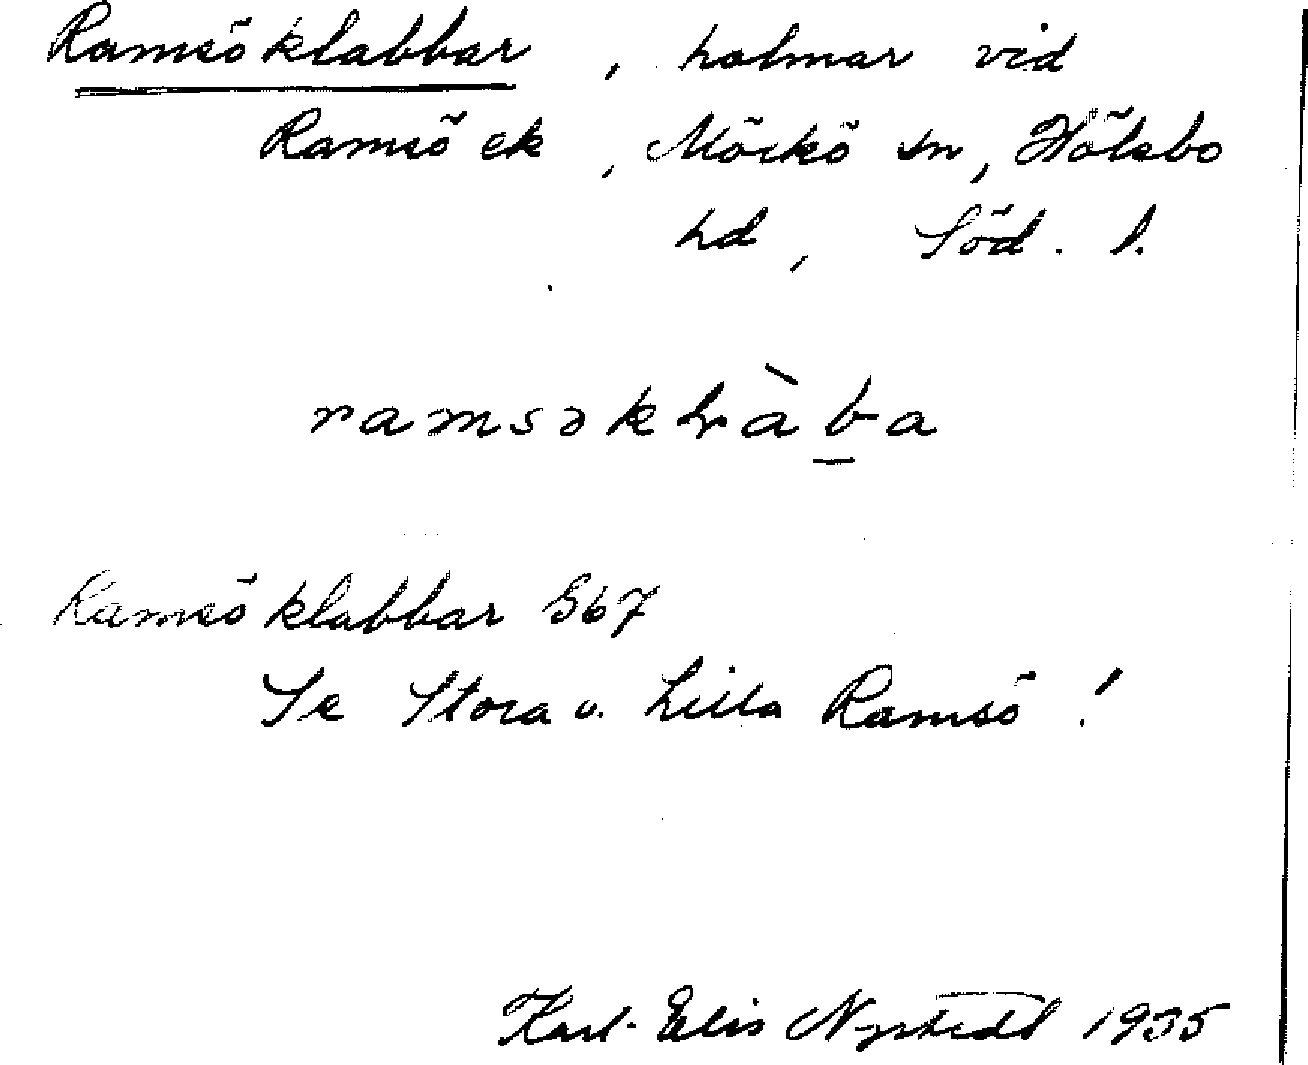 Ramsöklabbar, holmar vid
Ramsö ek, Mörkö sn, Hölebo
hd, Söd. l.
ramsəkḷàb̲a
Ramsöklabbar 567
Se Stora o. Lilla Ramsö!
Karl-Elis Nystedt 1935